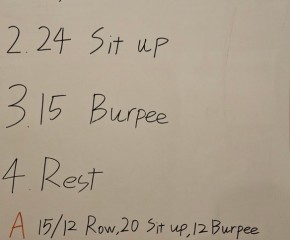 2. 24 Sit up
3. 15 Burpee
4. Rest
A 15/12 Row, 20 Sit up, 12 Burpee